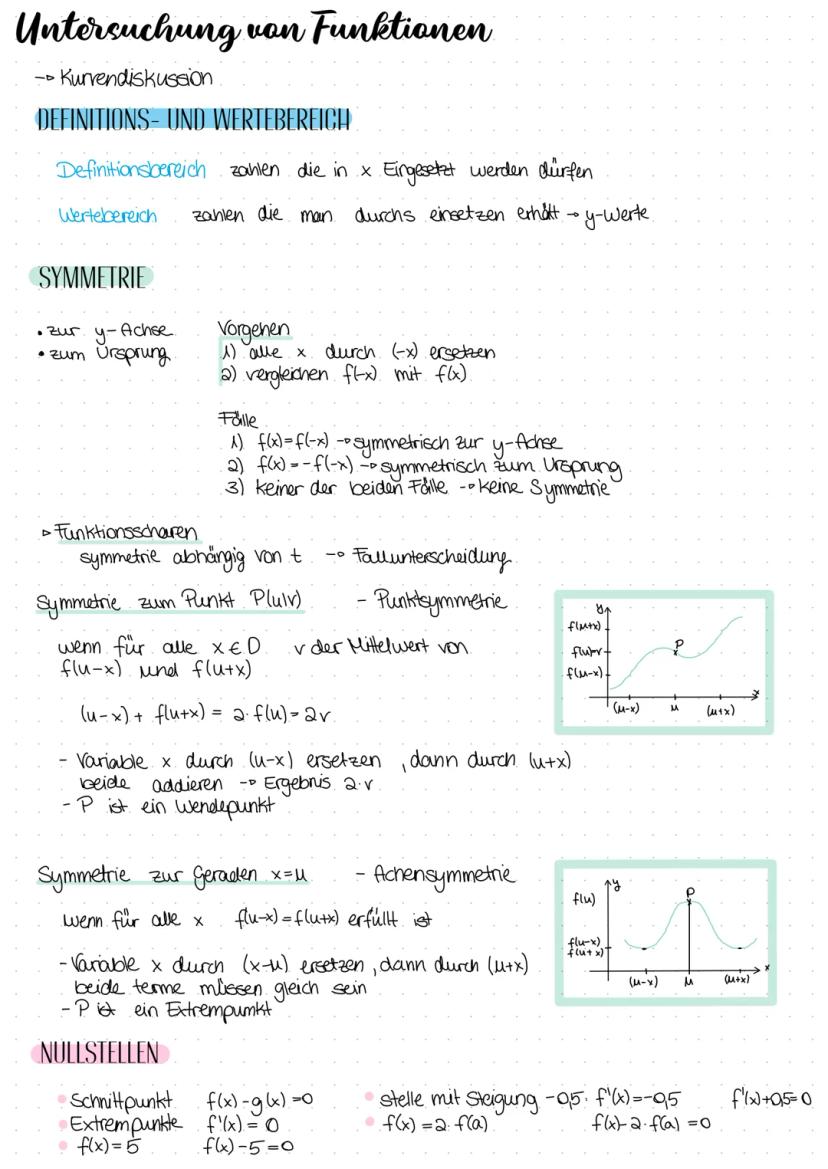 Untersuchung von Funktionen
→ Kurvendiskussion
DEFINITIONS- UND WERTEBEREICH
Definitionsbereich zahlen die in x Eingesetzt werden dürfen
Wertebereich zahlen die man durchs einsetzen erhält → y-Werte
SYMMETRIE
• zur y-Achse
• zum Ursprung
Vorgehen
1) alle x durch (-x) ersetzen
2) vergleichen f(-x) mit f(x)
Fälle
1) f(x)=f(-x) → symmetrisch zur y-Achse
2) f(x)=-f(-x) → symmetrisch zum Ursprung
3) keiner der beiden Fälle → keine Symmetrie
▹ Funktionsscharen
symmetrie abhängig von t → Fallunterscheidung
Symmetrie zum Punkt P(u|v) - Punktsymmetrie
wenn für alle x∈D v der Mittelwert von
f(u-x) und f(u+x)
(u-x) + f(u+x) = 2·f(u)=2v
- Variable x durch (u-x) ersetzen, dann durch (u+x)
beide addieren → Ergebnis 2·v
- P ist ein Wendepunkt
y
f(u+x)
f(u)=v
f(u-x)
P
x
(u-x) u (u+x)
Symmetrie zur Geraden x=u - Achensymmetrie
wenn für alle x f(u-x)=f(u+x) erfüllt ist
- Variable x durch (x-u) ersetzen, dann durch (u+x)
beide terme müssen gleich sein
- P ist ein Extrempunkt
y
f(u)
P
f(u-x)
f(u+x)
x
(u-x) u (u+x)
NULLSTELLEN
• Schnittpunkt f(x)-g(x)=0
• Extrempunkte f'(x)=0
• f(x)=5 f(x)-5=0
• stelle mit Steigung -0,5· f'(x)=-0,5 f'(x)+0,5=0
• f(x)=2·f(a) f(x)-2·f(a)=0